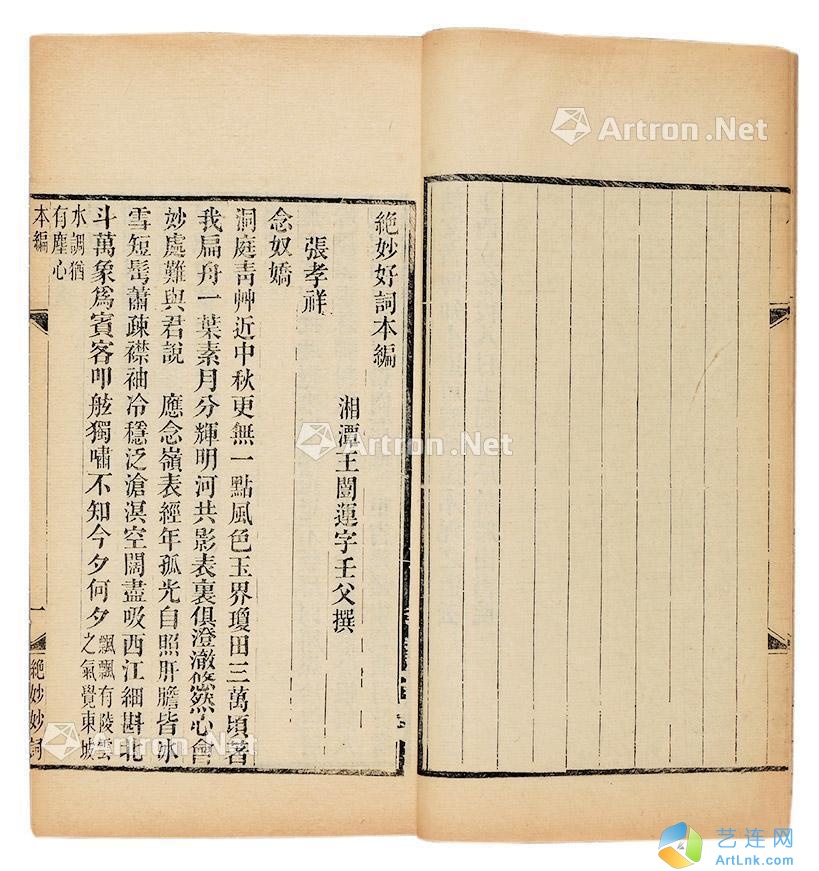 絕妙好詞本編
湘潭王闓運字壬父撰
張孝祥
念奴嬌
洞庭靑艸近中秋更無一點風色玉界瓊田三萬頃著
我扁舟一葉素月分輝明河共影表裏俱澄澈悠然心會
妙處難與君說　應念嶺表經年孤光自照肝膽皆冰
雪短髩蕭疎襟袖冷穩泛滄溟空闊盡吸西江細斟北
斗萬象爲賓客叩舷獨嘯不知今夕何夕
飄飄有陵雲
之氣覺東坡
水調猶
有塵心
本編
一
絕妙妙詞
Artron.Net
Artron.Net
Artron.Net
艺连网
ArtLnk.com